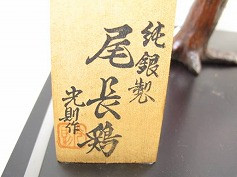 純銀製
尾長鶏
光則作